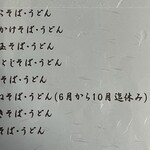 こそば・うどん
かけそば・うどん
玉そば・うどん
とじそば・うどん
そば・うどん
ねそば・うどん(6月から10月迄休み)
きそば・うどん
そば・うどん